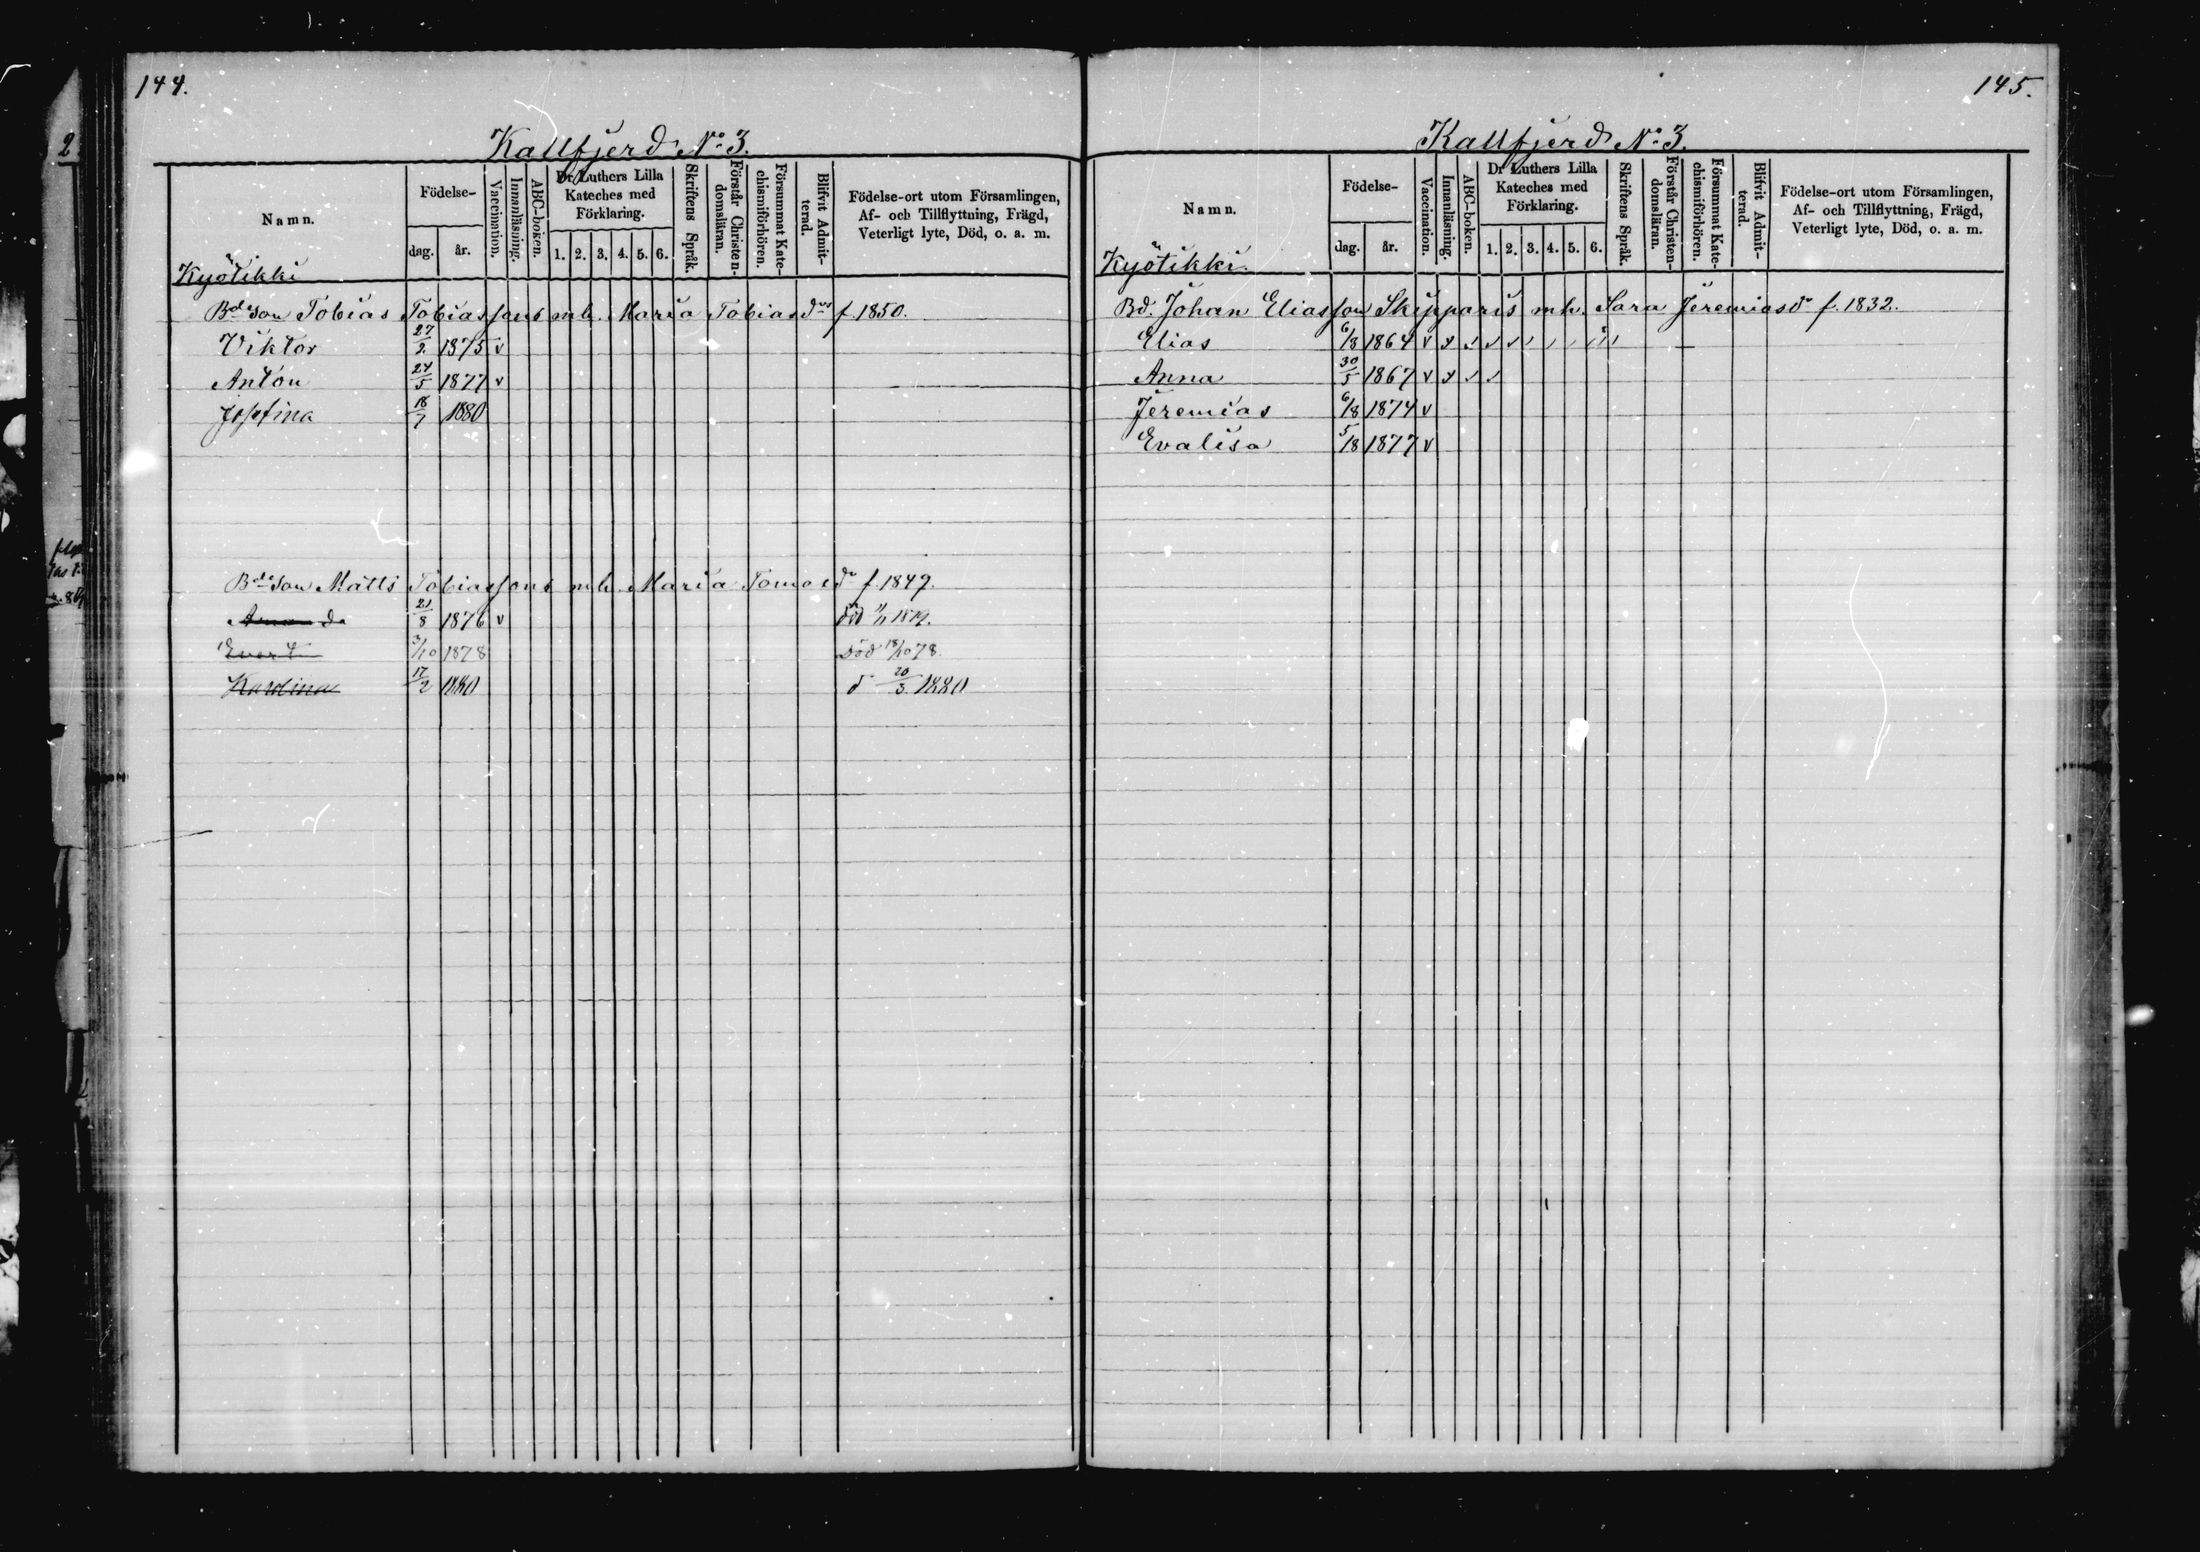 144.
Kallfjerd No 3.
Namn.
Födelse-
dag. år.
Vaccination.
Innanläsning.
ABC-boken.
Dr Luthers Lilla
Kateches med
Förklaring.
1. 2. 3. 4. 5. 6.
Skriftens Språk.
Förstår Christen-
domsläran.
Försummat Kate-
chismiförhören.
Blifvit Admit-
terad.
Födelse-ort utom Församlingen,
Af- och Tillflyttning, Frägd,
Veterligt lyte, Död, o. a. m.
Kyötikki
Bdeson Tobias Tobiassons mh. Maria Tobiasdr f. 1850.
Viktor 27/2 1875 v
Anton 24/5 1877 v
Josefina 18/7 1880
Bdeson Matts Tobiassons mh. Maria Tomasdr f. 1849.
21/8 1876 v död 1/1 1879.
Evert 3/10 1878 Död 18/10 78.
Karolina 17/2 1880 d 20/3 1880
145.
Kallfjerd No 3.
Namn.
Födelse-
dag. år.
Vaccination.
Innanläsning.
ABC-boken.
Dr Luthers Lilla
Kateches med
Förklaring.
1. 2. 3. 4. 5. 6.
Skriftens Språk.
Förstår Christen-
domsläran.
Försummat Kate-
chismiförhören.
Blifvit Admit-
terad.
Födelse-ort utom Församlingen,
Af- och Tillflyttning, Frägd,
Veterligt lyte, Död, o. a. m.
Kyötikki.
Bd. Johan Eliasson Skipparis mh. Sara Jeremiasdr f. 1832.
Elias 6/8 1864 v
Anna 30/5 1867 v
Jeremias 6/8 1874 v
Evalisa 5/8 1877 v